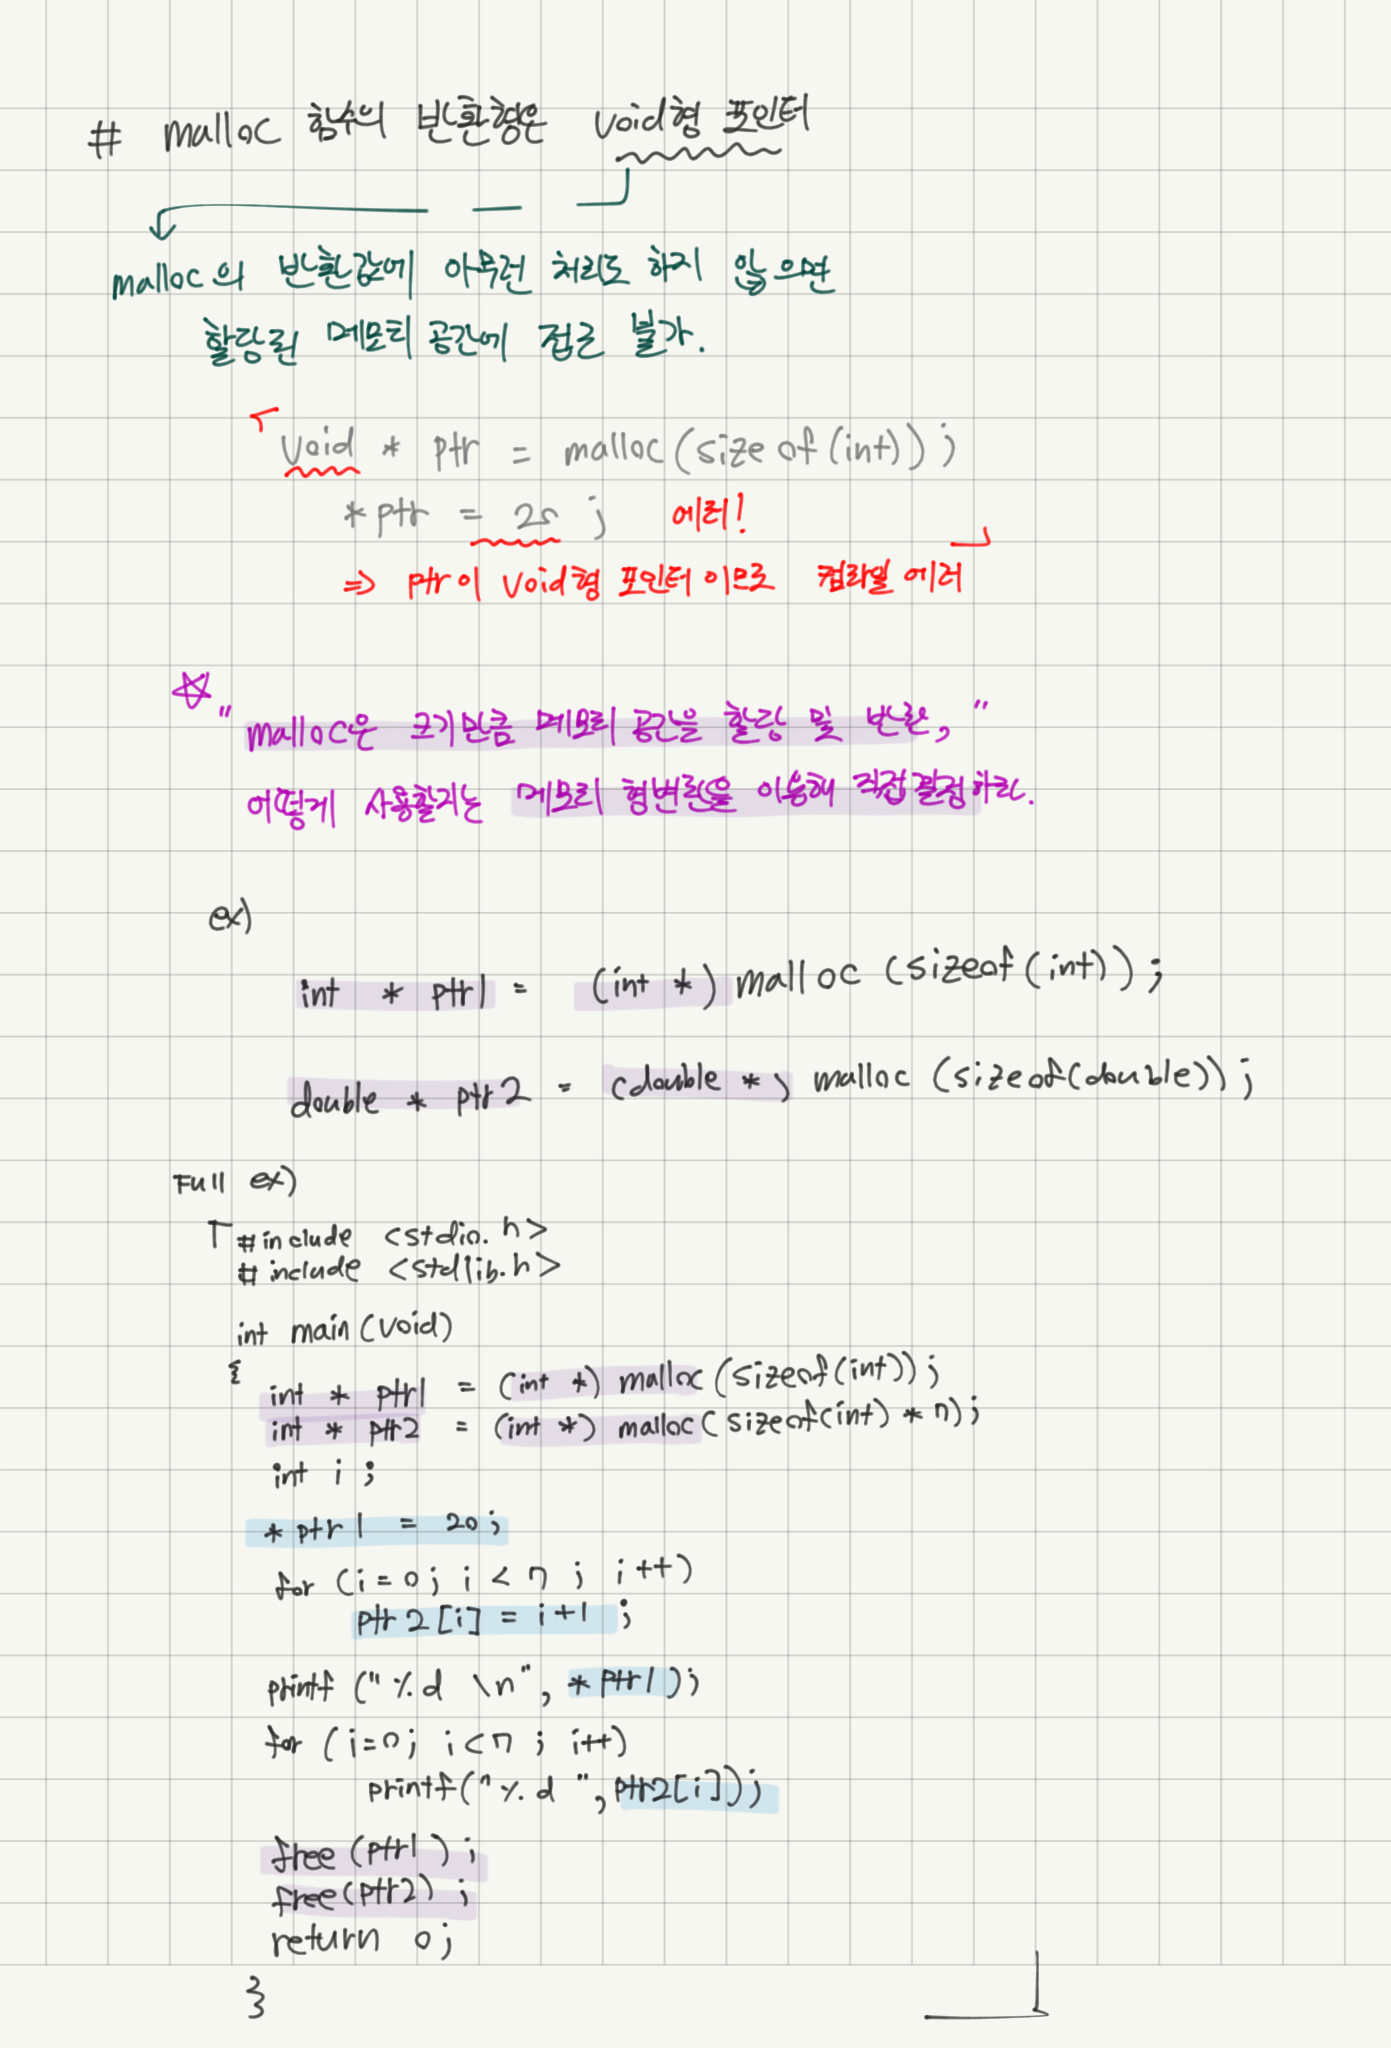 # malloc 함수의 반환형은 void형 포인터
malloc의 반환값에 아무런 처리도 하지 않으면
할당된 메모리 공간에 접근 불가.
「void * ptr = malloc(sizeof(int));
*ptr = 20; 에러! 」
⇒ ptr이 void형 포인터 이므로 컴파일 에러
☆ "malloc은 크기만큼 메모리 공간을 할당 및 반환,"
어떻게 사용할지는 메모리 형변환을 이용해 직접 결정하라.
ex)
int * ptr1 = (int *) malloc (sizeof(int));
double * ptr2 = (double *) malloc (sizeof(double));
Full ex)
「#include <stdio.h>
#include <stdlib.h>
int main(void)
{
int * ptr1 = (int *) malloc (sizeof(int));
int * ptr2 = (int *) malloc (sizeof(int) * 7);
int i ;
*ptr1 = 20;
for (i=0; i<7 ; i++)
ptr2[i] = i+1 ;
printf ("%d \n", *ptr1);
for (i=0; i<7 ; i++)
printf("%d ", ptr2[i]);
free (ptr1) ;
free(ptr2) ;
return 0;
} 」